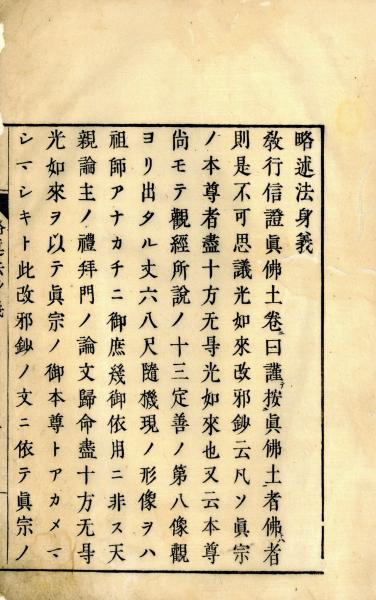 略述法身義
教行信證眞佛土卷曰謹按眞佛土者佛者
則是不可思議光如來改邪鈔云凡ソ眞宗
ノ本尊者盡十方无㝵光如來也又云本尊
尚モテ觀經所說ノ十三定善ノ第八像觀
ヨリ出タル丈六八尺隨機現ノ形像ヲハ
祖師アナカチニ御庶幾御依用ニ非ス天
親論主ノ禮拜門ノ論文歸命盡十方无㝵
光如來ヲ以テ眞宗ノ御本尊トアカメマ
シマシキト此改邪鈔ノ文ニ依テ眞宗ノ